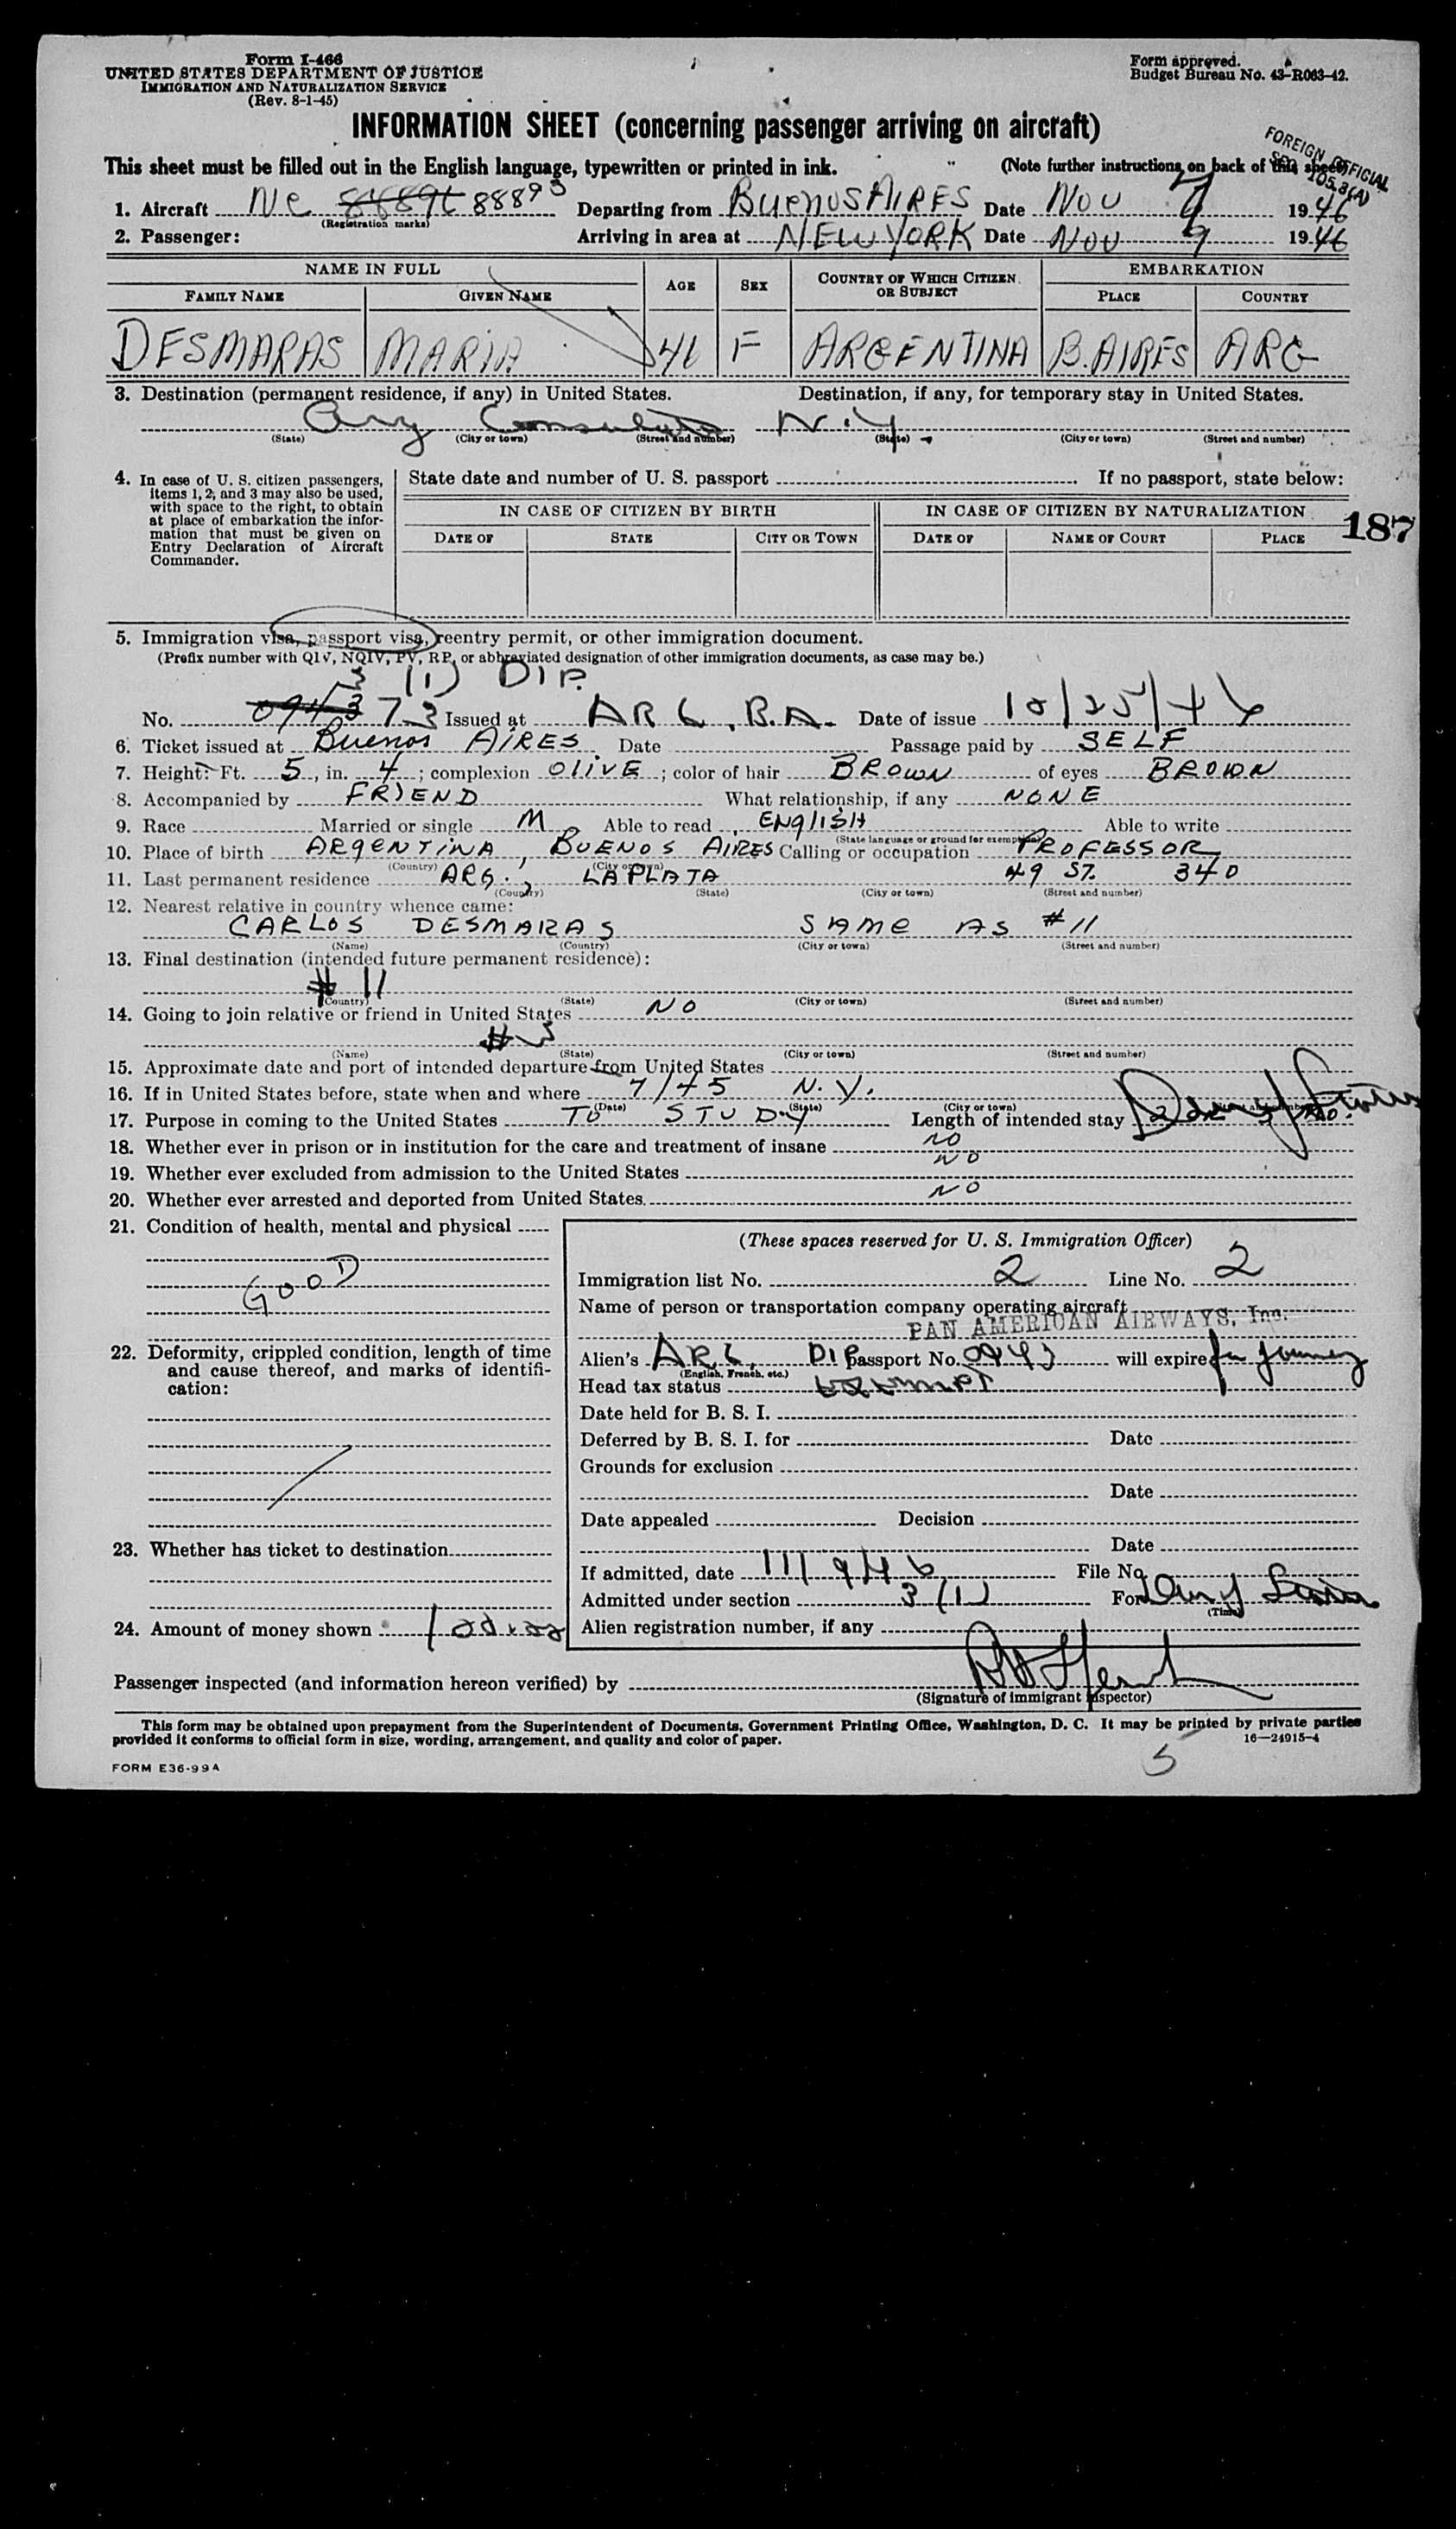 Form I-466
UNITED STATES DEPARTMENT OF JUSTICE
IMMIGRATION AND NATURALIZATION SERVICE
(Rev. 8-1-45)
Form approved.
Budget Bureau No. 43-R063-42.
INFORMATION SHEET (concerning passenger arriving on aircraft)
FOREIGN OFFICIAL
This sheet must be filled out in the English language, typewritten or printed in ink. (Note further instructions on back of this sheet)
1. Aircraft NC 88893 Departing from BUENOS AIRES Date NOV 1946
(Registration marks)
2. Passenger: Arriving in area at NEW YORK Date NOV 9 1946
NAME IN FULL AGE SEX COUNTRY OF WHICH CITIZEN OR SUBJECT EMBARKATION
FAMILY NAME GIVEN NAME PLACE COUNTRY
DESMARAS MARIA 46 F ARGENTINA B.AIRES ARG
3. Destination (permanent residence, if any) in United States. Destination, if any, for temporary stay in United States.
Arg Consulate N.Y.
(State) (City or town) (Street and number) (State) (City or town) (Street and number)
4. In case of U. S. citizen passengers, items 1, 2, and 3 may also be used, with space to the right, to obtain at place of embarkation the information that must be given on Entry Declaration of Aircraft Commander.
State date and number of U. S. passport If no passport, state below:
IN CASE OF CITIZEN BY BIRTH IN CASE OF CITIZEN BY NATURALIZATION
187
DATE OF STATE CITY OR TOWN DATE OF NAME OF COURT PLACE
5. Immigration visa, passport visa, reentry permit, or other immigration document.
(Prefix number with QIV, NQIV, PV, RP, or abbreviated designation of other immigration documents, as case may be.)
3 (1) DIP.
No. 0943 73 Issued at ARG, B.A. Date of issue 10/25/46
6. Ticket issued at Buenos AIRES Date Passage paid by SELF
7. Height: Ft. 5, in. 4; complexion OLIVE; color of hair BROWN of eyes BROWN
8. Accompanied by FRIEND What relationship, if any NONE
9. Race Married or single M Able to read ENGLISH Able to write
(State language or ground for exemption)
10. Place of birth ARGENTINA, BUENOS AIRES Calling or occupation PROFESSOR
(Country) (City or town)
11. Last permanent residence ARG., LA PLATA 49 ST. 340
(Country) (State) (City or town) (Street and number)
12. Nearest relative in country whence came:
CARLOS DESMARAS SAME AS #11
(Name) (Country) (City or town) (Street and number)
13. Final destination (intended future permanent residence):
# 11
(Country) (State) (City or town) (Street and number)
14. Going to join relative or friend in United States NO
# 3
(Name) (State) (City or town) (Street and number)
15. Approximate date and port of intended departure from United States
16. If in United States before, state when and where 7/45 N.Y.
(Date) (State) (City or town)
17. Purpose in coming to the United States TO STUDY Length of intended stay
18. Whether ever in prison or in institution for the care and treatment of insane NO
19. Whether ever excluded from admission to the United States NO
20. Whether ever arrested and deported from United States NO
21. Condition of health, mental and physical
GOOD
(These spaces reserved for U. S. Immigration Officer)
Immigration list No. 2 Line No. 2
Name of person or transportation company operating aircraft
PAN AMERICAN AIRWAYS, Inc.
22. Deformity, crippled condition, length of time and cause thereof, and marks of identification:
Alien's ARG. DIP passport No. 0943 will expire
(English, French, etc.)
Head tax status exempt
Date held for B. S. I.
Deferred by B. S. I. for Date
Grounds for exclusion
Date
Date appealed Decision
Date
23. Whether has ticket to destination
If admitted, date 11/9/46 File No.
Admitted under section 3(1) For
(Time)
24. Amount of money shown
Alien registration number, if any
Passenger inspected (and information hereon verified) by
(Signature of immigrant inspector)
This form may be obtained upon prepayment from the Superintendent of Documents, Government Printing Office, Washington, D. C. It may be printed by private parties
provided it conforms to official form in size, wording, arrangement, and quality and color of paper.
16—24915-4
5
FORM E36-99A